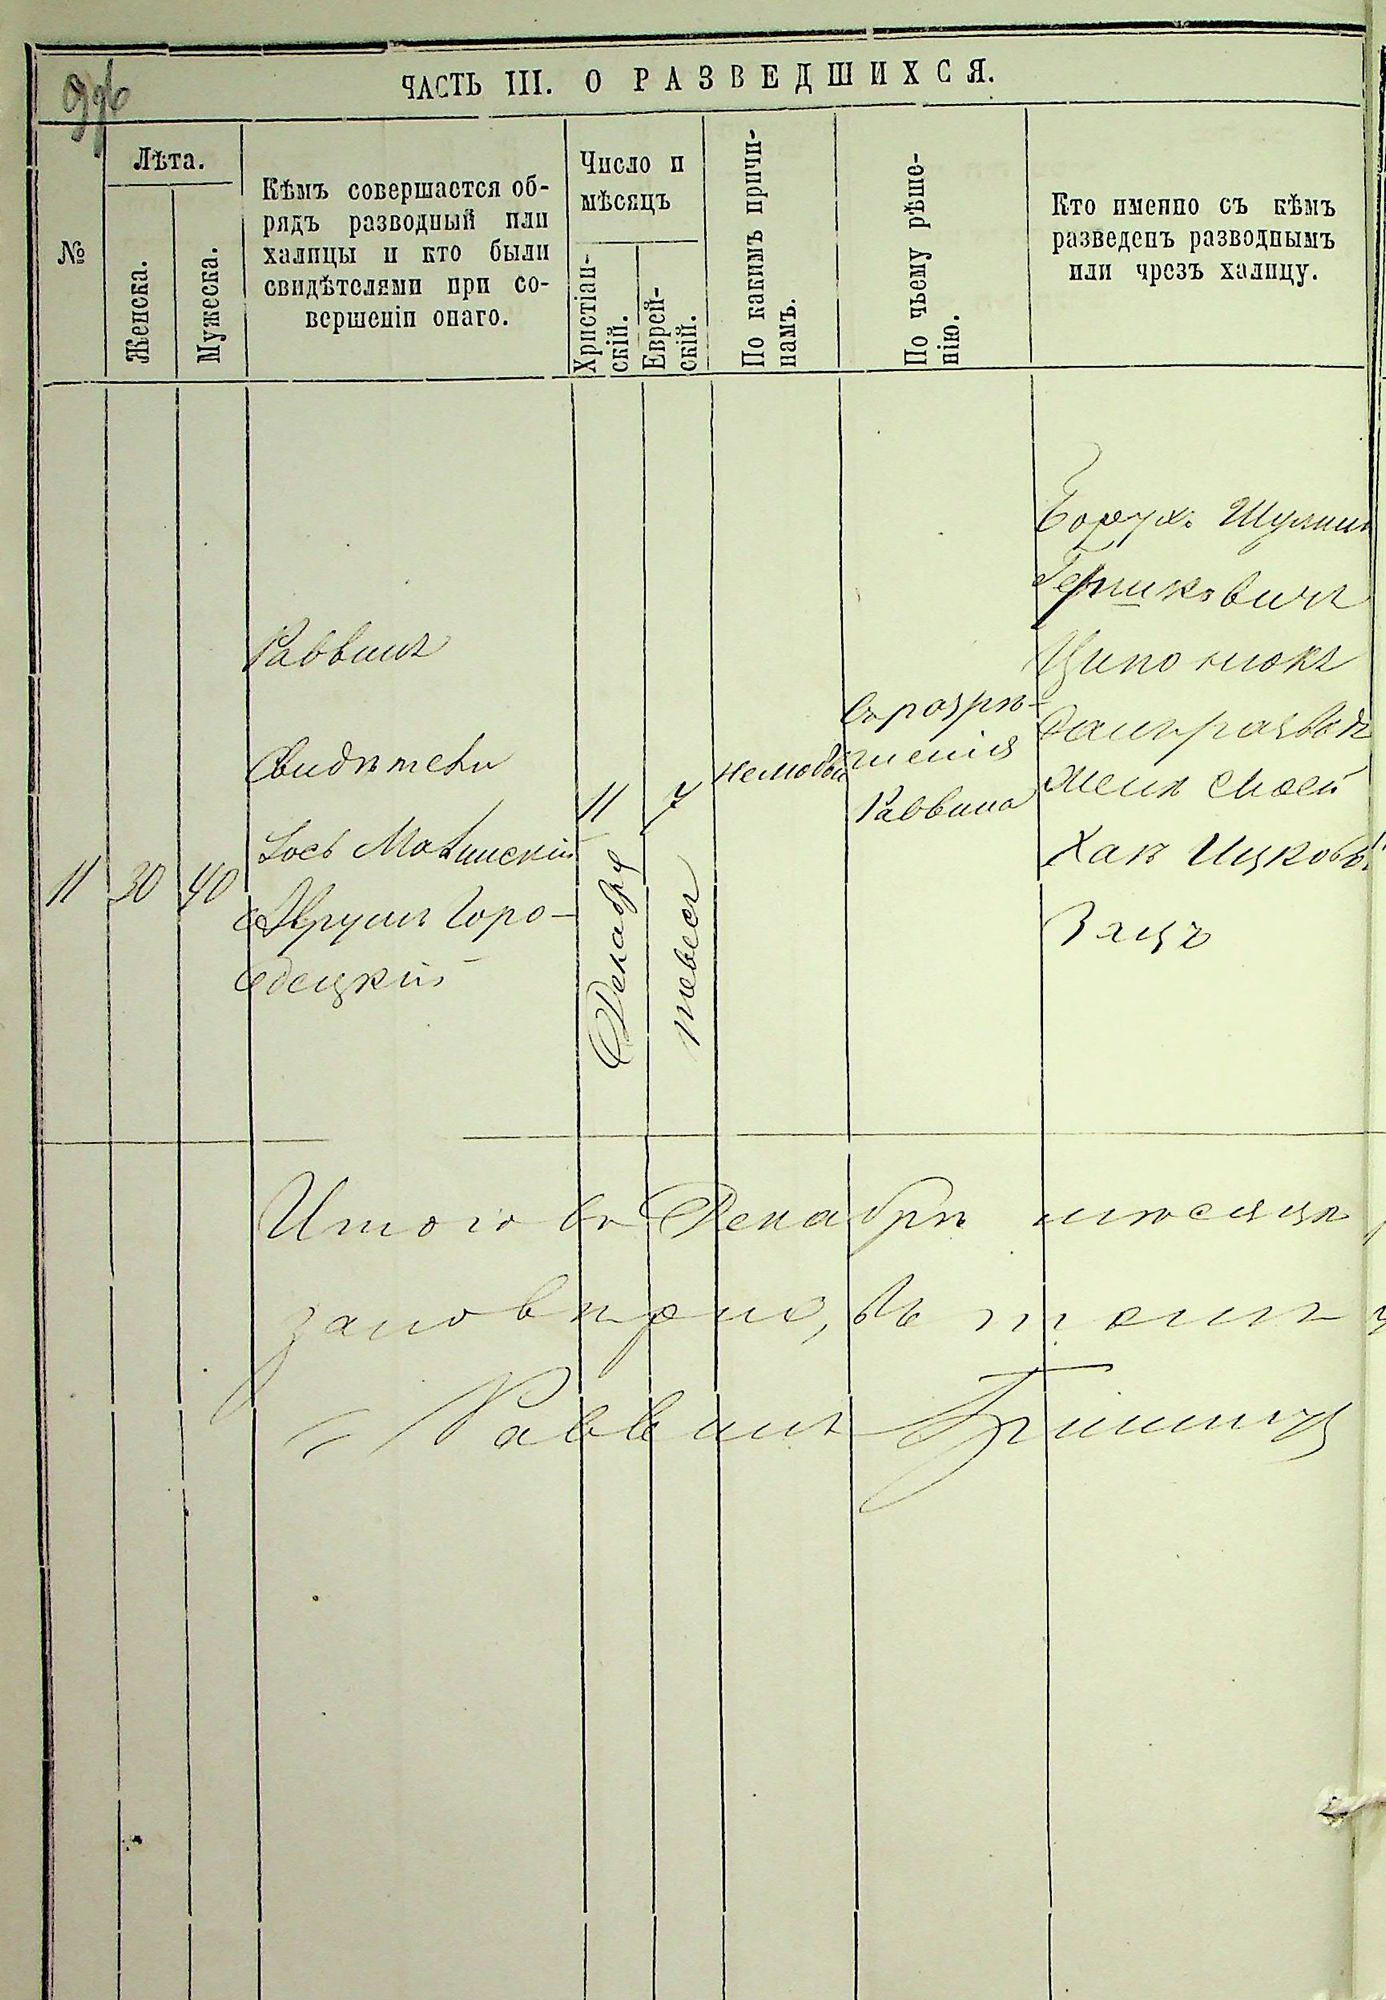 ЧАСТЬ III. О РАЗВЕДШИХСЯ.
№
Лѣта.
Женска.
Мужеска.
Кѣмъ совершается об-
рядъ разводный или
халицы и кто были
свидѣтелями при со-
вершеніи онаго.
Число и
мѣсяцъ
Христіан-
скій.
Еврей-
скій.
По какимъ причи-
намъ.
По чьему рѣше-
нію.
Кто именно съ кѣмъ
разведенъ разводнымъ
или чрезъ халицу.
11
30
40
Раввинъ
Свидѣтели
Іось
Горо-
децкій
11
Декабря
7
тевеса
Съ разрѣ-
шенія
Раввина
Борухъ Шулим
Гершковичъ
Ципонюкъ
далъ разводъ
женѣ своей
Хаѣ Ицковой
Заецъ
Итого въ Декабрѣ мѣсяцѣ
въ томъ
Раввинъ